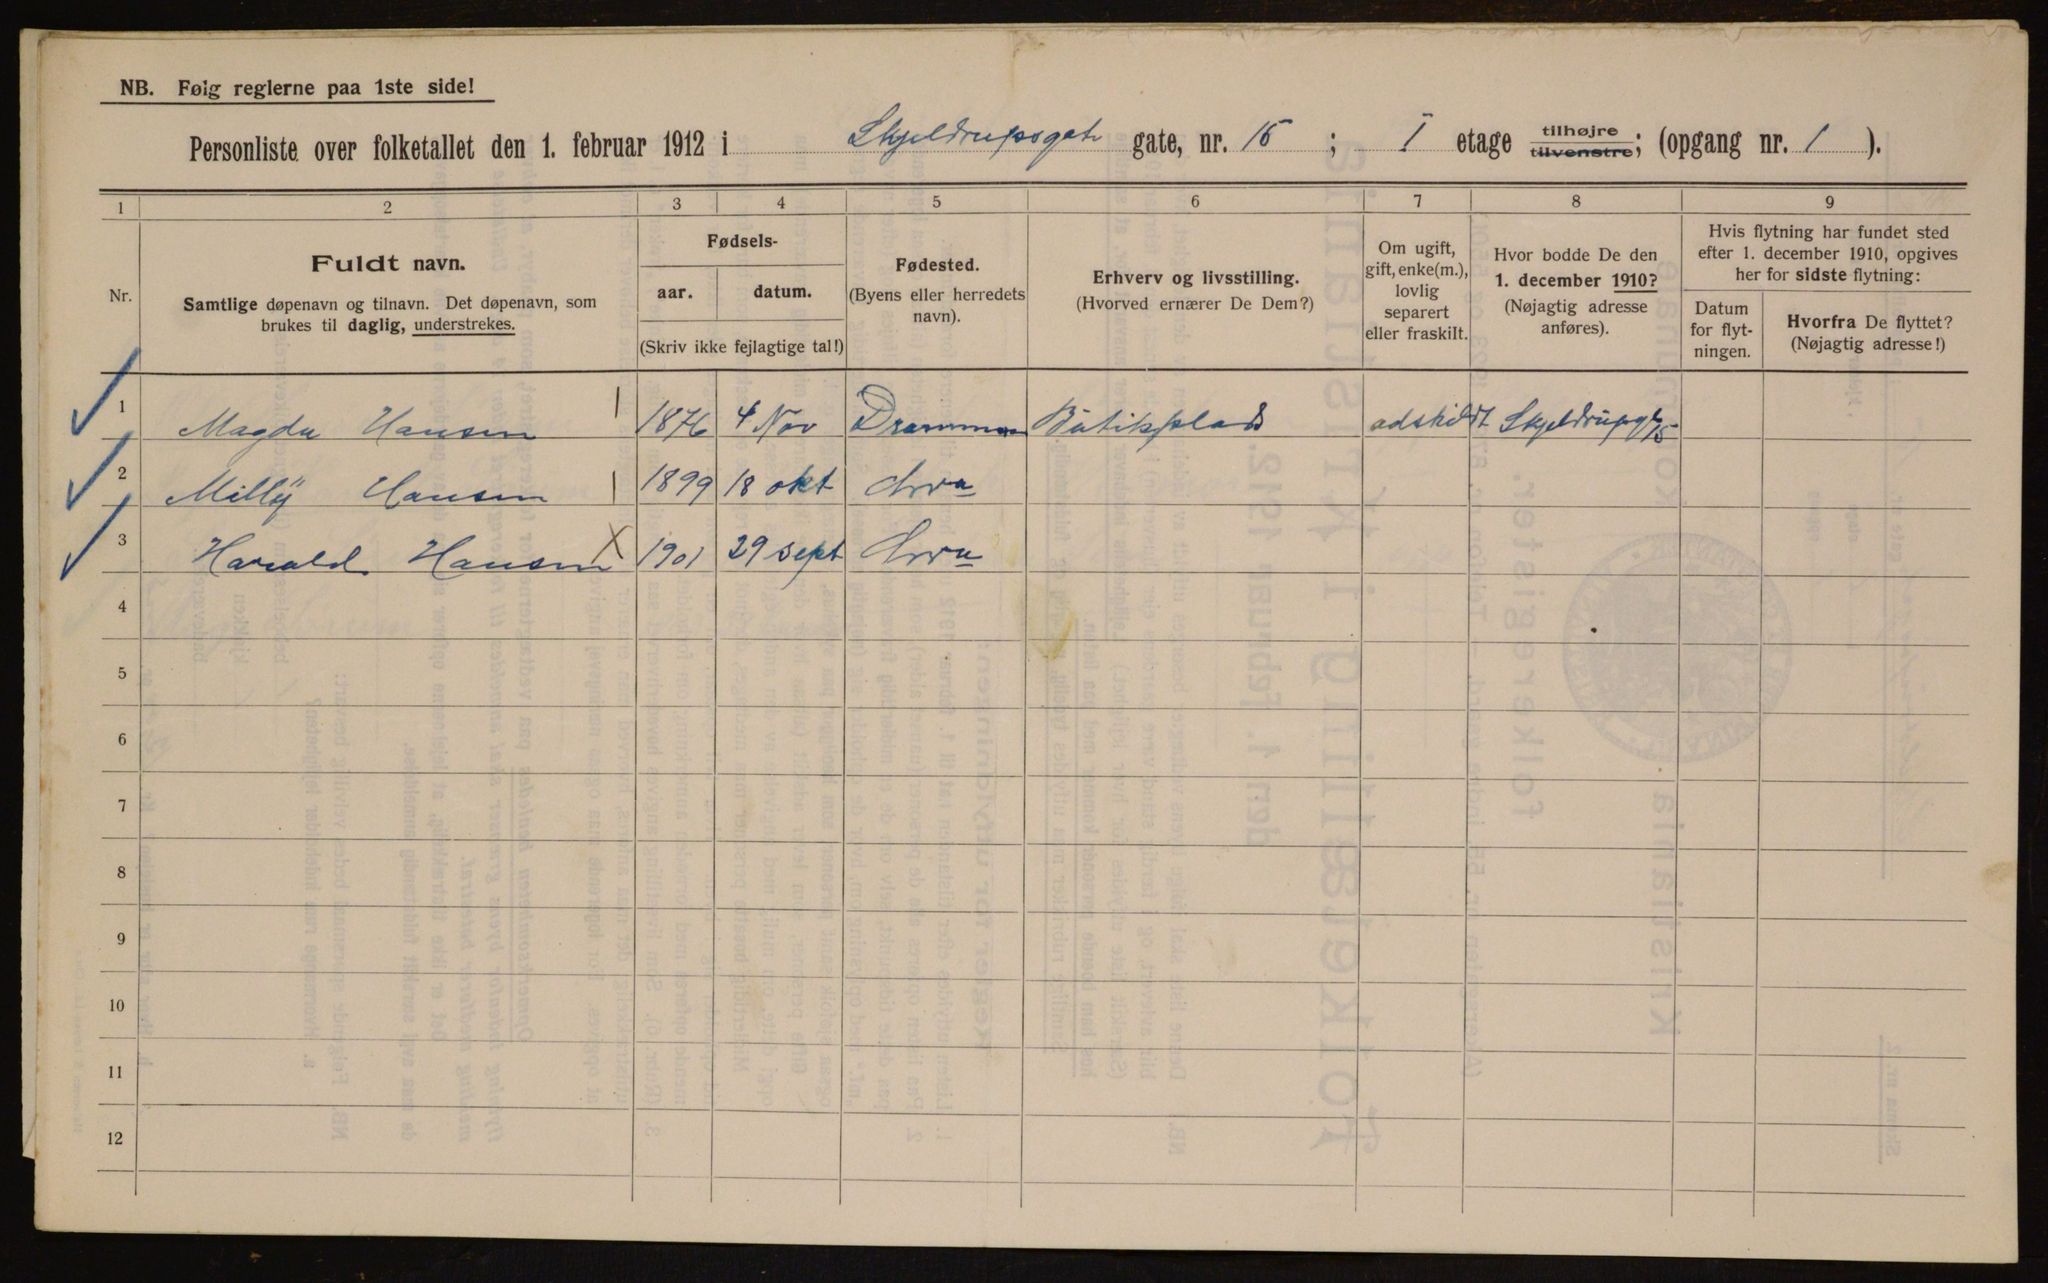 NB. Følg reglerne paa 1ste side!
Personliste over folketallet den 1. februar 1912 i Skjeldrupsgate gate, nr. 15 ; I etage tilhøjre tilvenstre; (opgang nr. 1 ).
1 2 3 4 5 6 7 8 9
Nr.
Fuldt navn.
Samtlige døpenavn og tilnavn. Det døpenavn, som
brukes til daglig, understrekes.
Fødsels-
aar. datum.
(Skriv ikke fejlagtige tal!)
Fødested.
(Byens eller herredets
navn).
Erhverv og livsstilling.
(Hvorved ernærer De Dem?)
Om ugift,
gift, enke(m.),
lovlig
separert
eller fraskilt.
Hvor bodde De den
1. december 1910?
(Nøjagtig adresse
anføres).
Hvis flytning har fundet sted
efter 1. december 1910, opgives
her for sidste flytning:
Datum
for flyt-
ningen.
Hvorfra De flyttet?
(Nøjagtig adresse!)
1 Magda Hansen 1876 4 Nov Drammen Butikplads adskildt Skjeldrupsg 15
2 Milly Hansen 1899 18 okt
3 Harald Hansen X 1901 29 sept
4
5
6
7
8
9
10
11
12